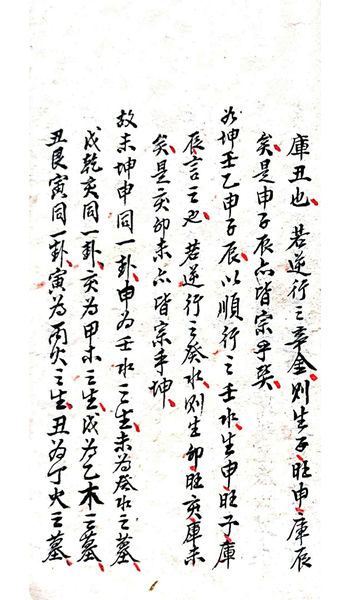 庫丑也若逆行之辛金則生子旺申庫辰
矣是申子辰亦皆宗乎癸
如坤壬乙申子辰以順行之壬水生申旺子庫
辰言之也若逆行之癸水則生卯旺亥庫未
矣是亥卯未亦皆宗乎坤
故未坤申同一卦申為壬水之生未為癸水之墓
戌乾亥同一卦亥為甲木之生戌為乙木之墓
丑艮寅同一卦寅為丙火之生丑為丁火之墓